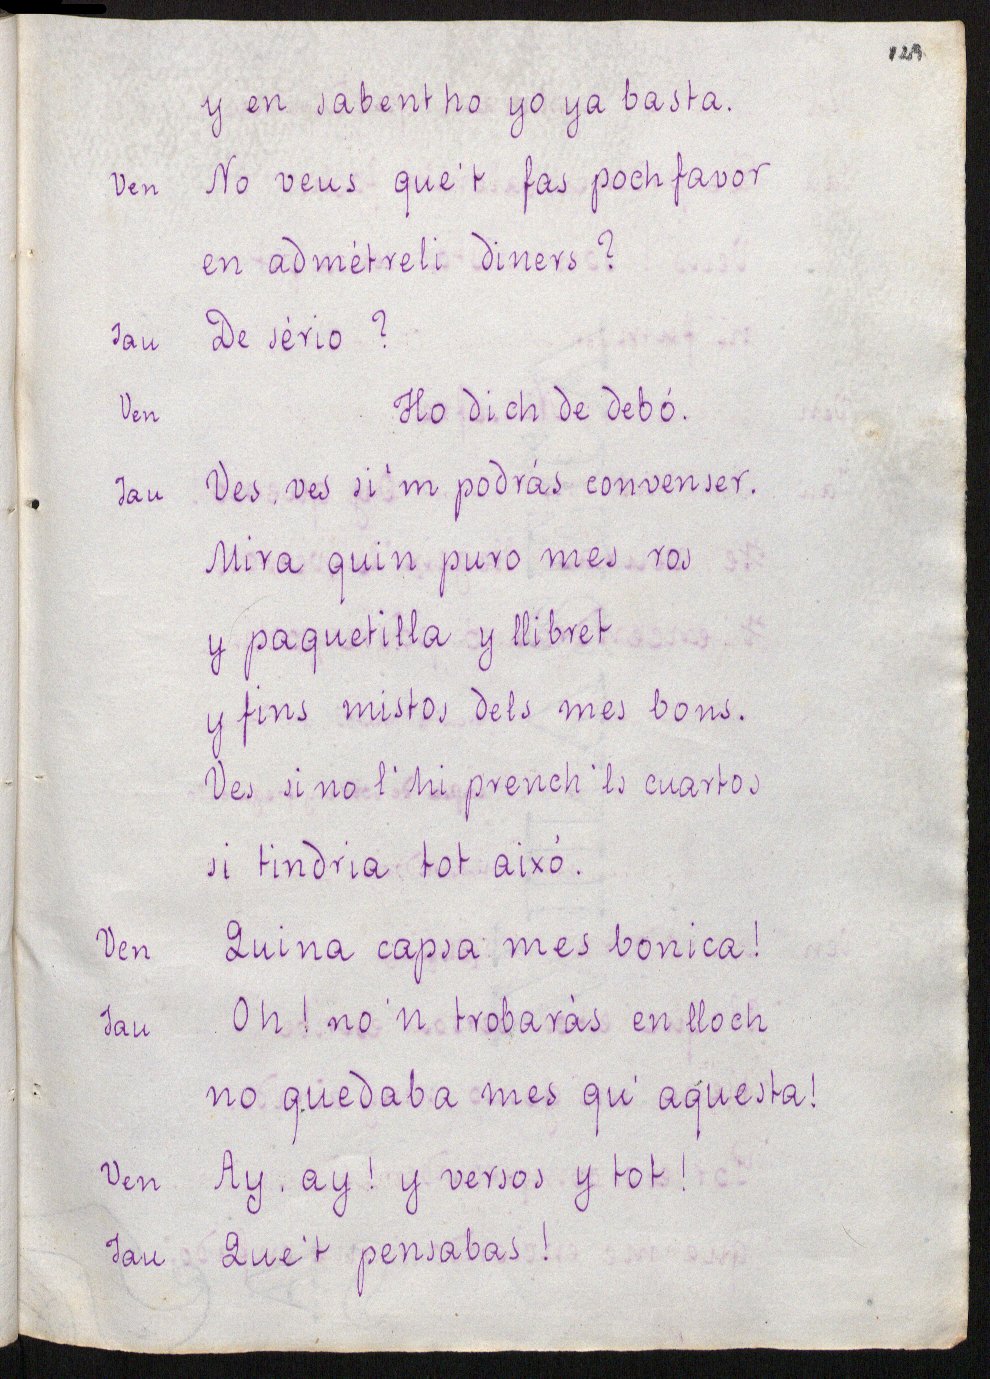 129
y en sabentho yo ya basta.
Ven No veus que't fas poch favor
en admétreli diners?
Jau De sério?
Ven Ho dich de debó.
Jau Ves, ves si'm podrás convenser.
Mira quin puro mes ros
y paquetilla y llibret
y fins mistos dels mes bons.
Ves si no l'hi prench'ls cuartos
si tindria tot aixó.
Ven Quina capsa mes bonica!
Jau Oh! no'n trobarás en lloch
no quedaba mes qu'aquesta!
Ven Ay, ay! y versos y tot!
Jau Que't pensabas!